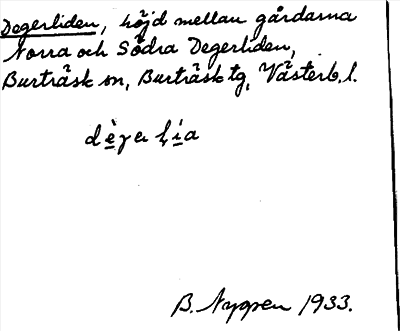 Degerliden, höjd mellan gårdarna
Norra och Södra Degerliden,
Burträsk sn, Burträsk tg, Västerb. l.
B. Nygren 1933.